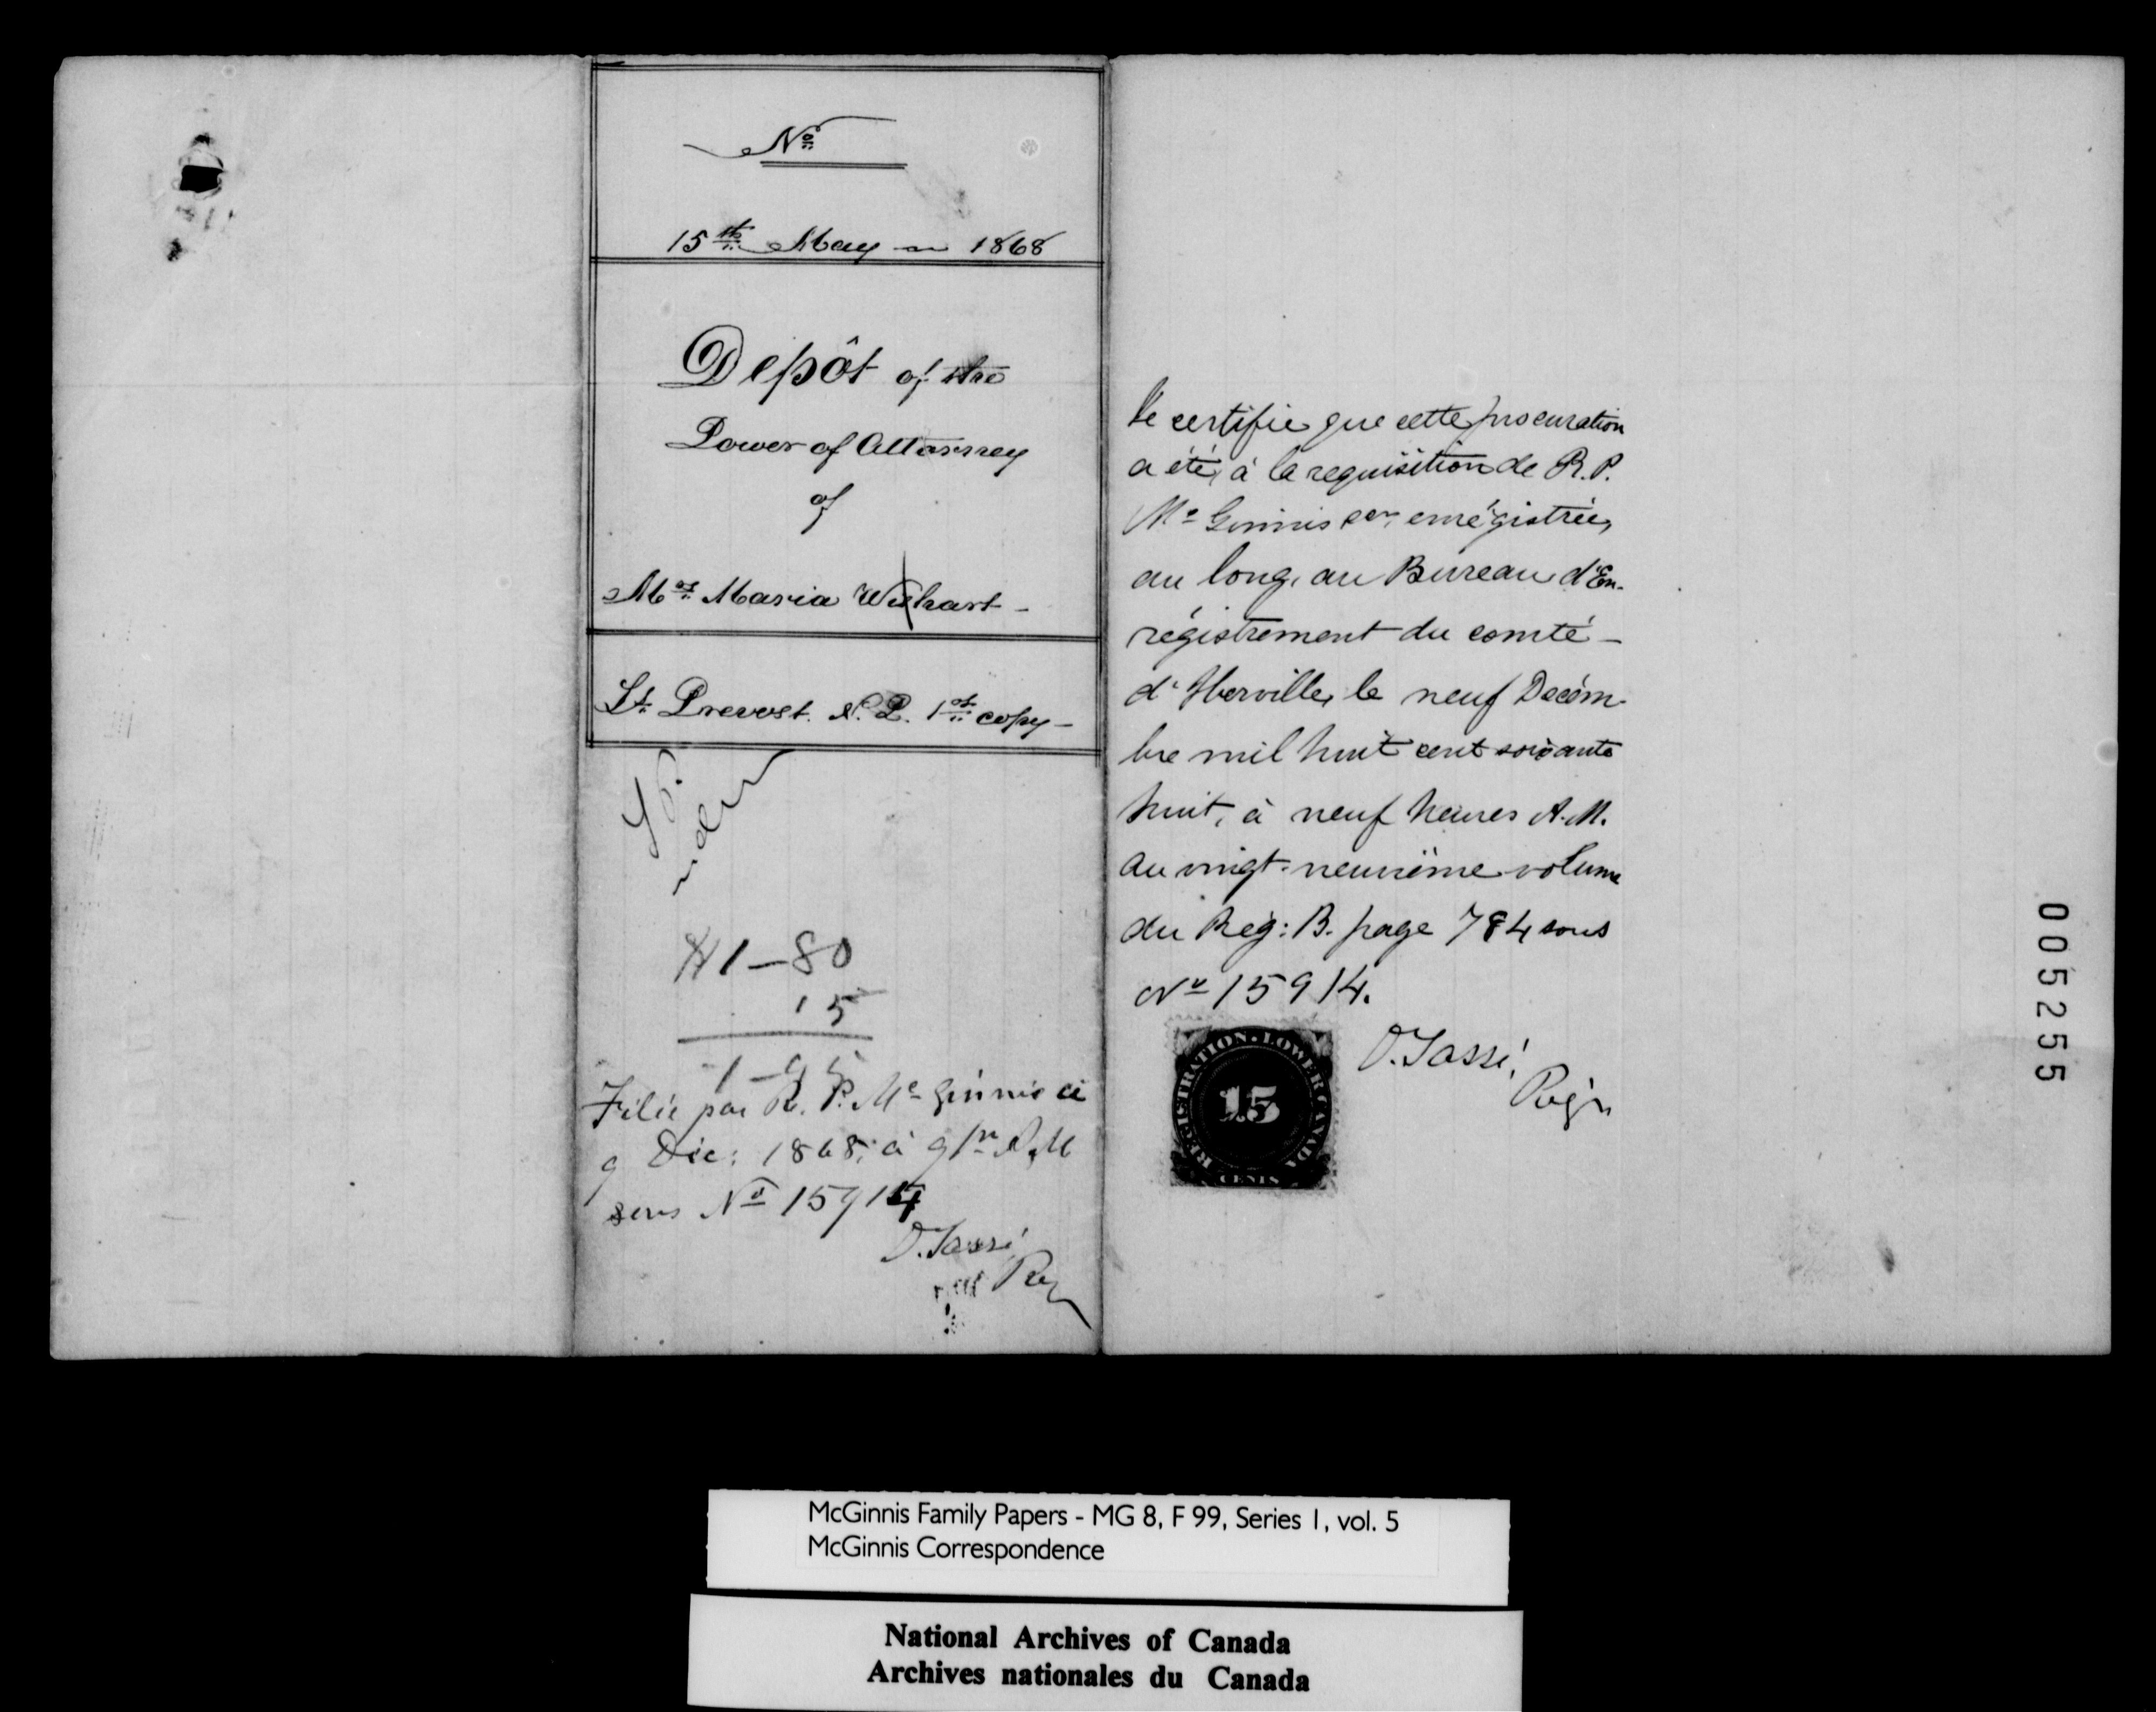 No
15th May 1868
Depôt of the
Power of Attorney
of
Mrs Maria Wishart
Lt Prevost N.P. 1st copy
$1-80
15
1-95
Filée par R. P. Mc Ginnis ce
9 Déc: 1868, à 9 hrs A.M
sous No 15914
O. Tassé
Reg
Je certifie que cette procuration
a été, à la requisition de R. P.
Mc Ginnis ecr, enrégistrée,
au long, au Bureau d'En-
régistrement du comté
d'Iberville, le neuf Décem-
bre mil huit cent soixante
huit, à neuf heures A.M.
au vingt-neuvième volume
du Reg: B. page 784 sous
No 15914.
O. Tassé,
Regr
REGISTRATION · LOWER CANADA
15
CENTS
005255
McGinnis Family Papers - MG 8, F 99, Series 1, vol. 5
McGinnis Correspondence
National Archives of Canada
Archives nationales du Canada